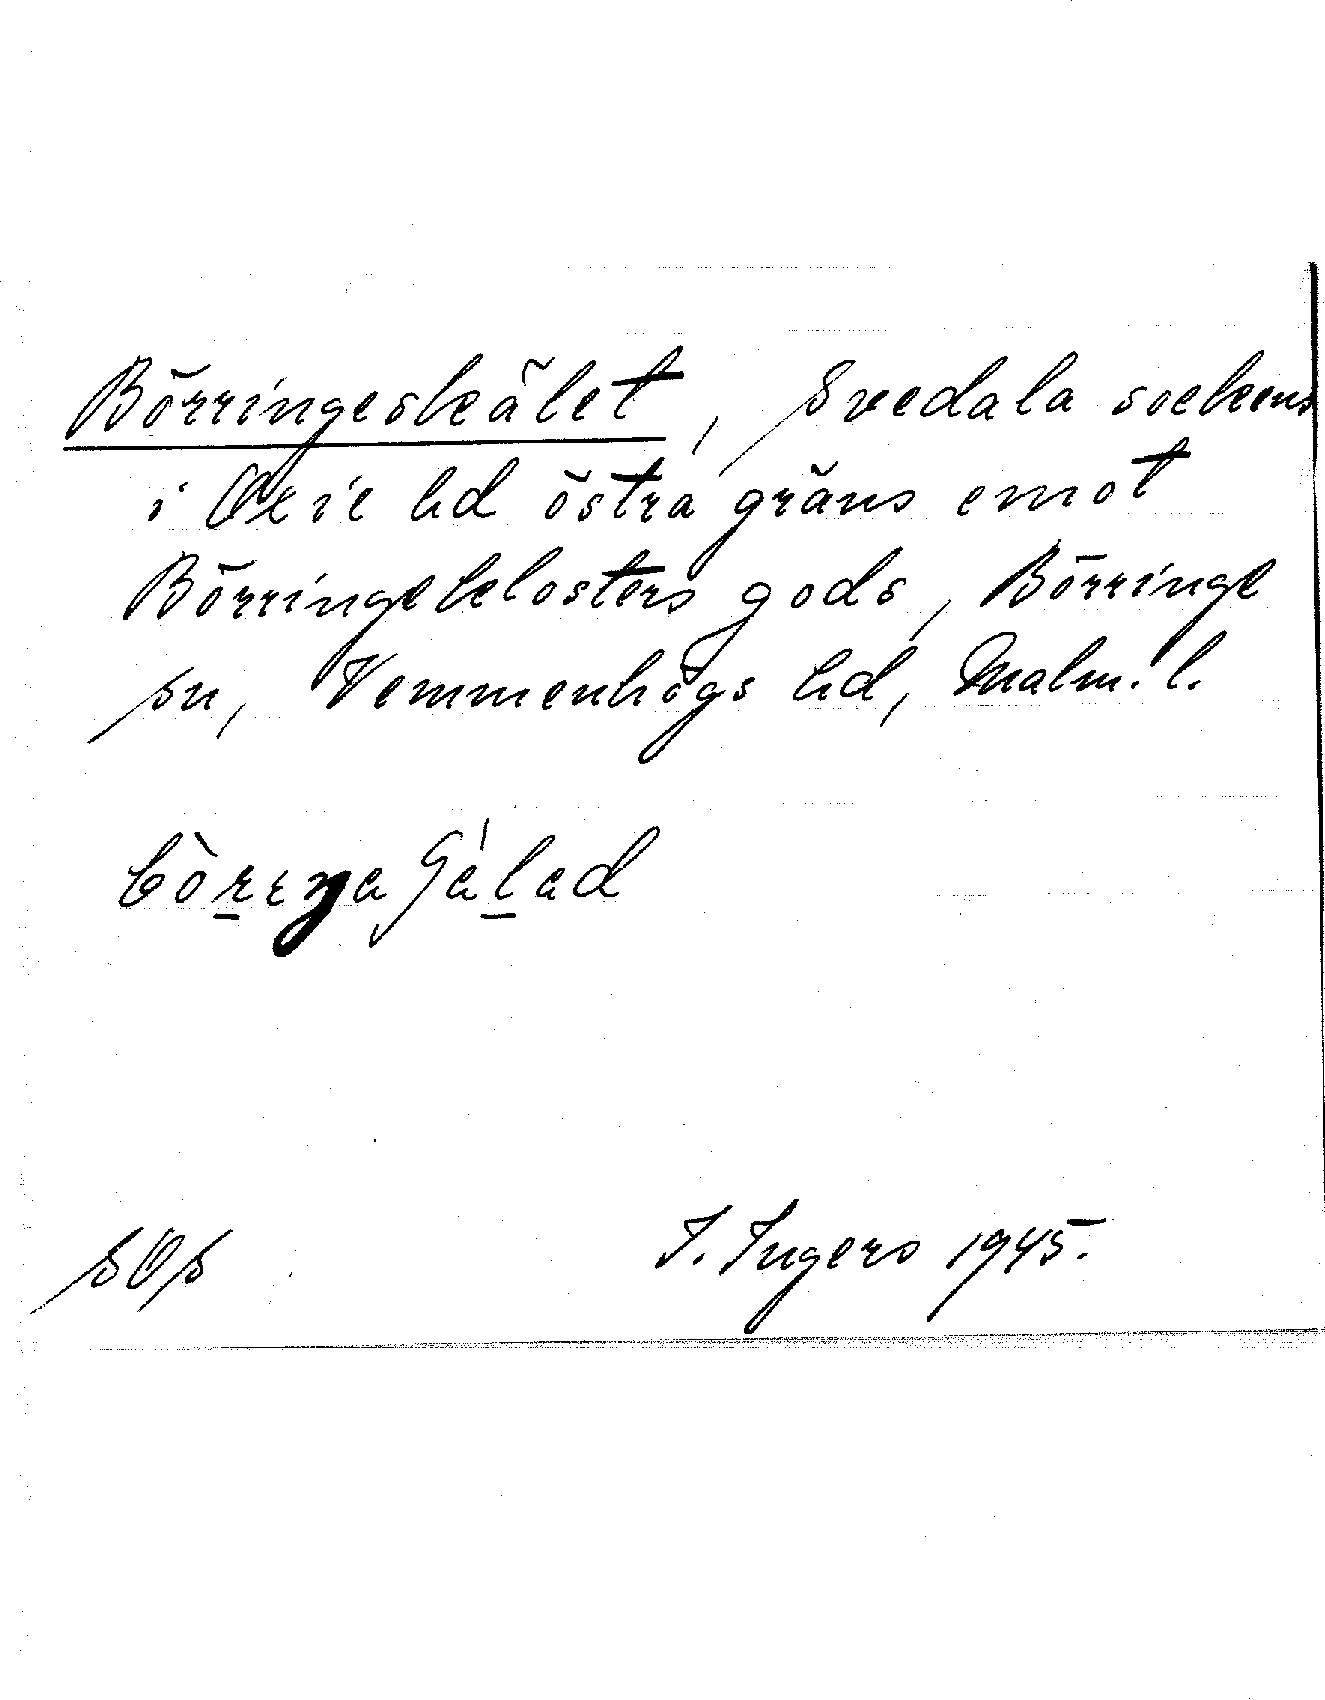 Börringeskälet, Svedala sockens
i Oxie hd östra gräns emot
Börringeklosters gods, Börringe
sn, Vemmenhögs hd, Malm. l.
SOS
I. Ingers 1945.